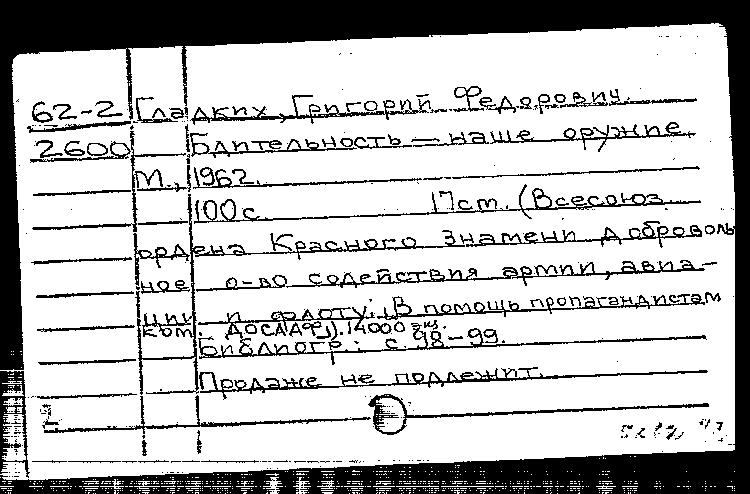 62-2 Гладких, Григорий Федорович.
2600 Бдительность — наше оружие
М., 1962.
100 с. 17 см. (Всесоюз
ордена Красного Знамени доброволь
ное о-во содействия армии, авиа-
ции и флоту. В помощь пропагандистам
ком. ДОСААФ). 14000 экз.
Библиогр.: с. 98-99.
Продаже не подлежит.
2